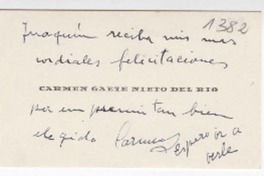 1382
Joaquín reciba mis mas
cordiales felicitaciones
CARMEN GAETE NIETO DEL RIO
por un premio tan bien
elegido Carmen
espero ir a
verle